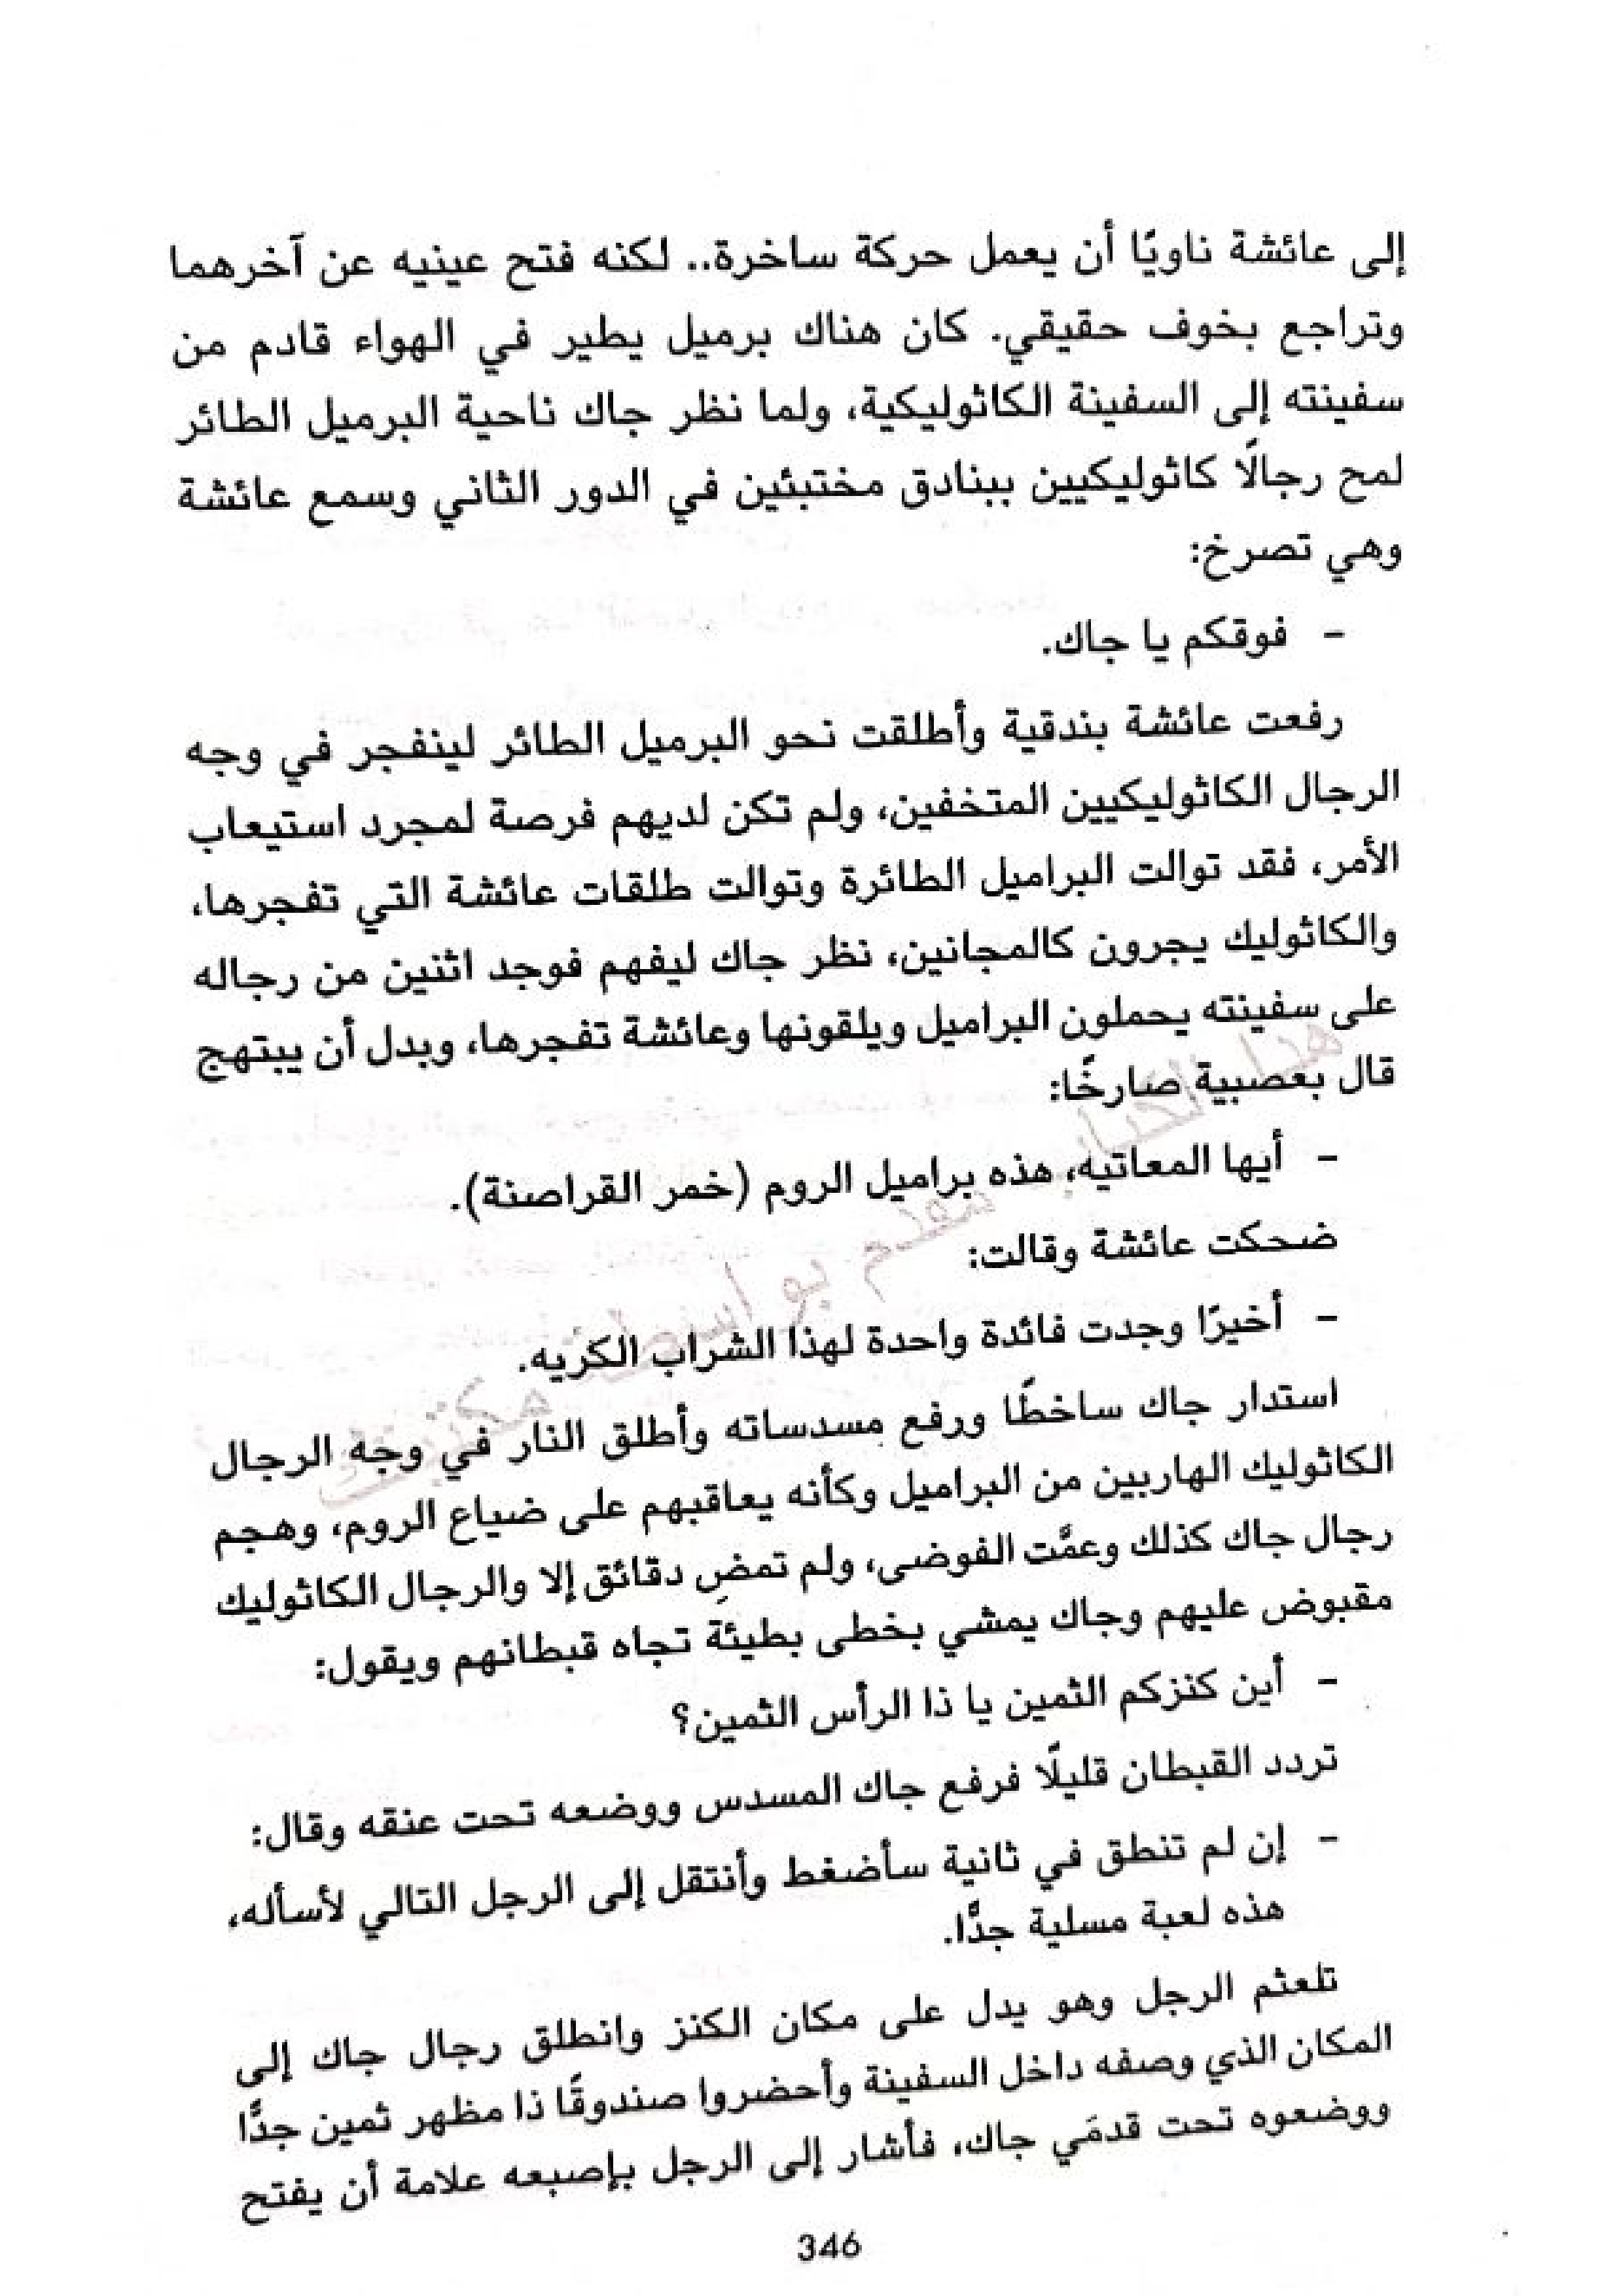 إلى عائشة ناويًا أن يعمل حركة ساخرة.. لكنه فتح عينيه عن آخرهما
وتراجع بخوف حقيقي. كان هناك برميل يطير في الهواء قادم من
سفينته إلى السفينة الكاثوليكية، ولما نظر جاك ناحية البرميل الطائر
لمح رجالًا كاثوليكيين ببنادق مختبئين في الدور الثاني وسمع عائشة
وهي تصرخ:
- فوقكم يا جاك.
رفعت عائشة بندقية وأطلقت نحو البرميل الطائر لينفجر في وجه
الرجال الكاثوليكيين المتخفين، ولم تكن لديهم فرصة لمجرد استيعاب
الأمر، فقد توالت البراميل الطائرة وتوالت طلقات عائشة التي تفجرها،
والكاثوليك يجرون كالمجانين، نظر جاك ليفهم فوجد اثنين من رجاله
على سفينته يحملون البراميل ويلقونها وعائشة تفجرها، وبدل أن يبتهج
قال بعصبية صارخًا:
- أيها المعاتيه، هذه براميل الروم (خمر القراصنة).
ضحكت عائشة وقالت:
- أخيرًا وجدت فائدة واحدة لهذا الشراب الكريه.
استدار جاك ساخطًا ورفع مسدساته وأطلق النار في وجه الرجال
الكاثوليك الهاربين من البراميل وكأنه يعاقبهم على ضياع الروم، وهجم
رجال جاك كذلك وعمَّت الفوضى، ولم تمضِ دقائق إلا والرجال الكاثوليك
مقبوض عليهم وجاك يمشي بخطى بطيئة تجاه قبطانهم ويقول:
- أين كنزكم الثمين يا ذا الرأس الثمين؟
تردد القبطان قليلًا فرفع جاك المسدس ووضعه تحت عنقه وقال:
- إن لم تنطق في ثانية سأضغط وأنتقل إلى الرجل التالي لأسأله،
هذه لعبة مسلية جدًّا.
تلعثم الرجل وهو يدل على مكان الكنز وانطلق رجال جاك إلى
المكان الذي وصفه داخل السفينة وأحضروا صندوقًا ذا مظهر ثمين جدًّا
ووضعوه تحت قدمَي جاك، فأشار إلى الرجل بإصبعه علامة أن يفتح
346